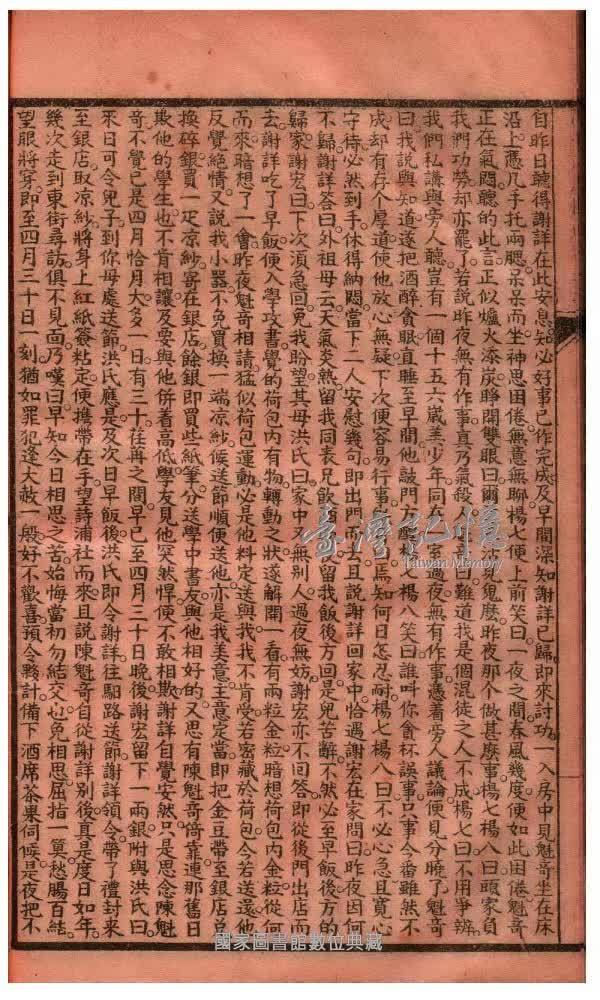 自昨日聽得謝詳在此安息知必好事已作完成及早間深知謝詳已歸即來討功一入房中見魁奇坐在床
沿上憑几手托兩腮呆呆而坐神思困倦無意無聊楊七便上前笑曰一夜之間春風幾度便如此困倦魁奇
正在氣悶聽的此言正似爐火添炭睜開雙眼曰爾沾見鬼麽昨夜那个做甚麽事楊七楊八曰頭家負
我們功勞却亦罷了若說昨夜無有作事真乃氣殺人魁奇曰難道我是個混徒之人不成楊七曰不用爭辨
我們私議與旁人聽豈有一個十五六歲美少年同在室過夜無有作事憑着旁人議論便見分曉了魁奇
曰我說與知道遂把酒醉貪眠直睡至早間他敲門方醒楊七楊八笑曰誰叫你貪杯誤事只事今番雖然不
成却有存个厚道使他放心無疑下次便容易行事焉知何日怎忍耐楊七楊八曰不必心急且寬心
守待必然到手休得納悶當下二人安慰幾句即出門而去且說謝詳回家中恰遇謝宏在家問曰昨夜因何
不歸謝詳答曰外祖母云天氣炎熱留我同表兄飲夜留我飯後方回是兒苦辭不然必至早飯後方的
歸家謝宏曰下次須急回免我盼望其母洪氏曰家中又無別人過夜無妨謝宏亦不回答即從後門出店而
去謝詳吃了早飯便入學攻書覺的荷包內有物轉動之狀遂解開一看有兩粒金粒暗想荷包內金粒從何
而來暗想了一會昨夜魁奇相請猛似荷包運動必是他料定送與我我不肯受若密藏於荷包今若送還他
反覺絶情又說我小器不免買換一端凉紗候送節順便送他亦是我美意主意定當即把金豆帶至銀店兌
換碎銀買一疋凉紗寄在銀店餘銀即買些紙筆分送學中書友與他相好的又思有陳魁奇倚靠連那舊日
欺他的學生也不肯相讓及要與他併着高低學友見他突然悍便不敢相欺謝詳自覺安然只是思念陳魁
奇不覺已是四月恰月大多一日有三十荏再之間早已至四月三十日晚後謝宏留下一兩銀附與洪氏曰
來日可令兒子到你母處送節洪氏應是及次日早飯後洪氏即令謝詳往䭾路送節謝詳領令帶了禮封來
至銀店取凉紗將身上紅紙簽粘定便攜帶在手望詩浦社而來且說陳魁奇自從謝詳別後真是度日如年
幾次走到東街尋訪俱不見面乃嘆曰早知今日相思之苦始悔當初勿結交也免相思屈指一算愁腸百結
望眼將穿即至四月三十日一刻猶如罪犯逢大赦一般好不歡喜預令夥計備下酒席茶果伺候是夜把不
臺灣記憶
Taiwan Memory
國家圖書館數位典藏